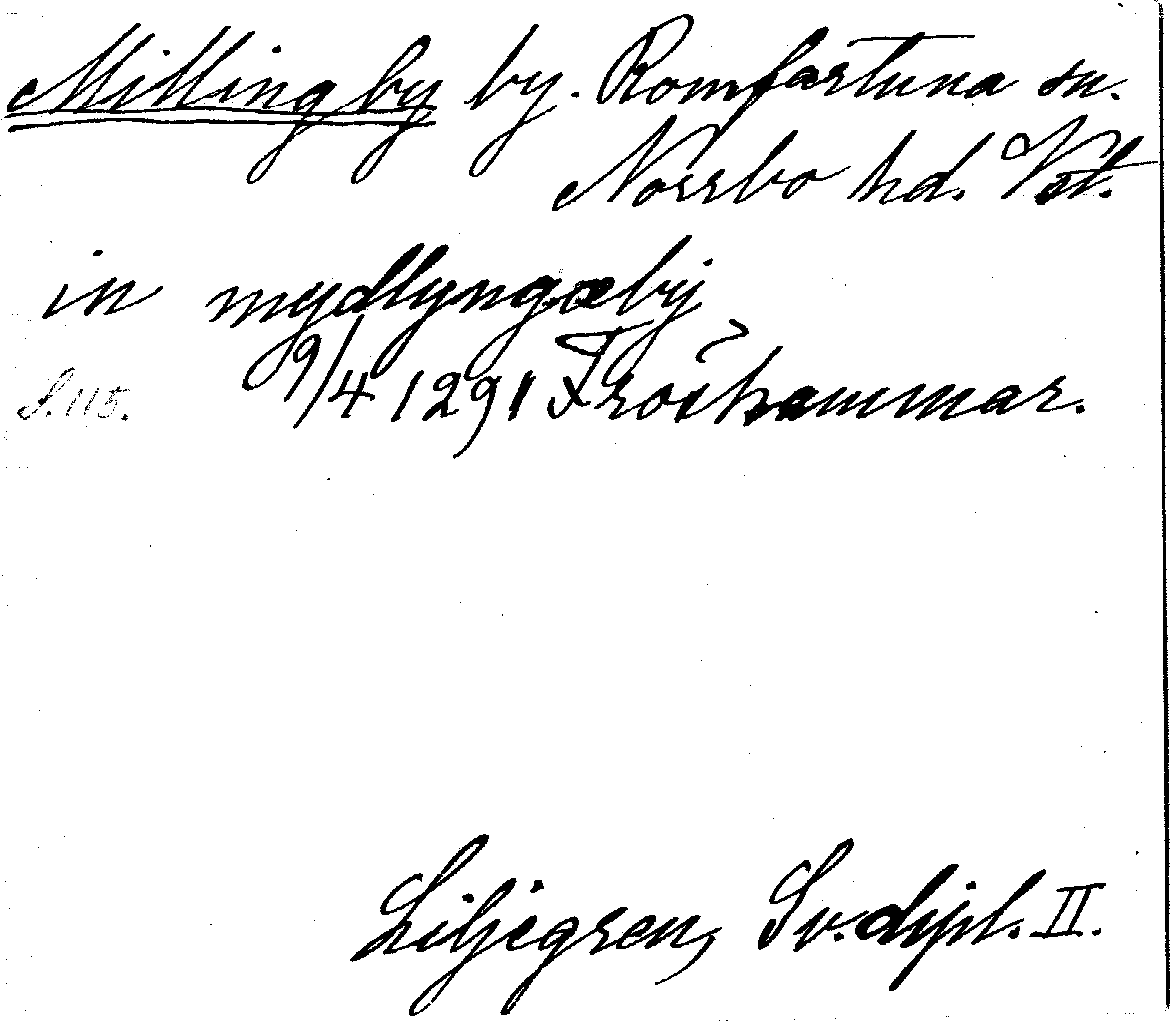 Millingby by. Romfartuna sn.
Norrbo hd. Vstl.
in mydlyngæby
S. 115. 9/4 1291 Fröshammar.
Liljegren, Sv. dipl. II.